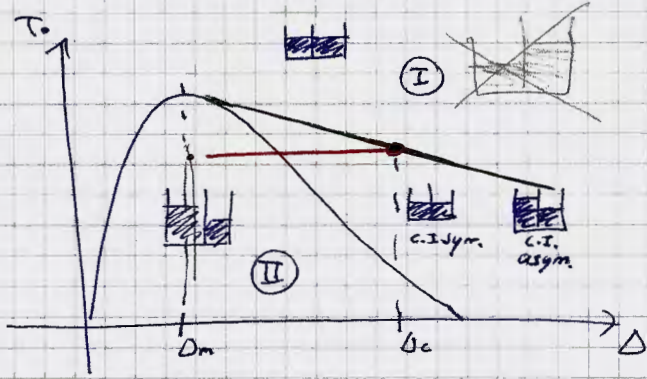 T₀
I
C.I sym.
C.I.
asym.
II
Δm
Δc
Δ